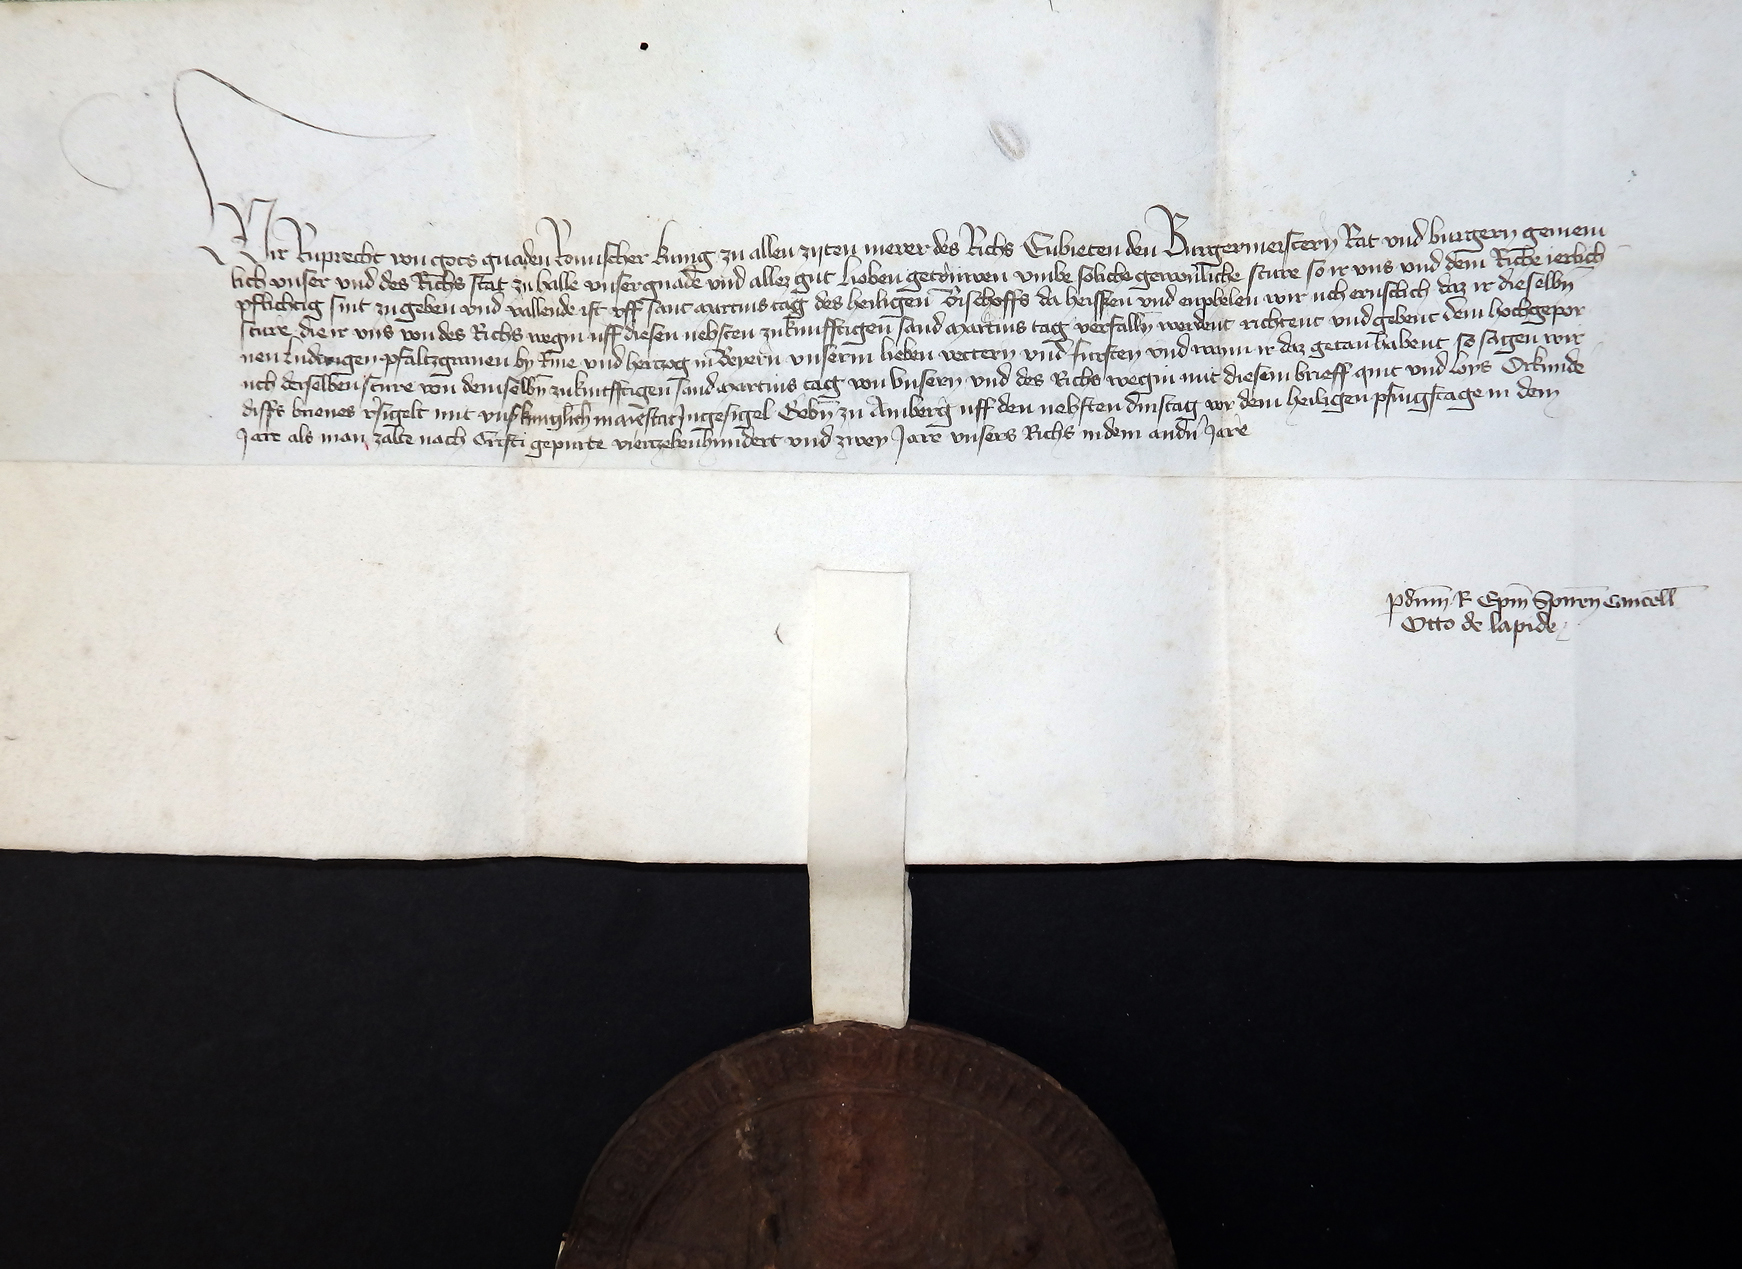 Wir Ruprecht von gots gnaden Romischer kunig zu allen zijten merer des Richs Enbieten den Burgermeistern Rat und burgern gemein
lich unser und des Richs Stat zu halle unser gnade und allez gut Lieben getruwen umbe soliche gewonliche sture so ir uns und dem Riche ierlich
pflichtig sint zu geben und vallende ist uff sant martins tag des heiligen Bischoffs da heissen und enphelen wir uch ernstlich daz ir dieselbn
sture die ir uns von des Richs wegin uff diesen nehsten zukunfftigen sand martins tag verfalln werdent richtent und gebent dem hochgepor
nen ludwigen pfaltzgrauen by Rine und hertzog in Beyern unserm lieben vettern und fursten und wann ir daz getan habent so sagen wir
uch derselben sture von demselbn zukunfftigen sand martins tag von unsern und des Richs wegin mit diesem brieff quit und loys Orkunde
diss brieues v'sigelt mit uns' kunglich maiestat Ingesigel Gebn zu Amberg uff den nehsten dinstag vor dem heiligen pfingstage in dem
Jare als man zalte nach Cristi gepurte viertzehenhundert und zwey Jare unsers Richs in dem andn Jare
p dnm R Epm Spiren Cancell
Otto de lapide